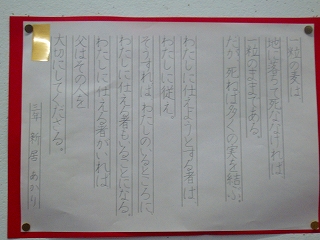 一粒の麦は、
地に落ちて死ななければ、
一粒のままである。
だが、死ねば、多くの実を結ぶ。
わたしに仕えようとする者は、
わたしに従え。
そうすれば、わたしのいるところに、
わたしに仕える者もいることになる。
わたしに仕える者がいれば、
父はその人を
大切にしてくださる。
三年 新居 あかり